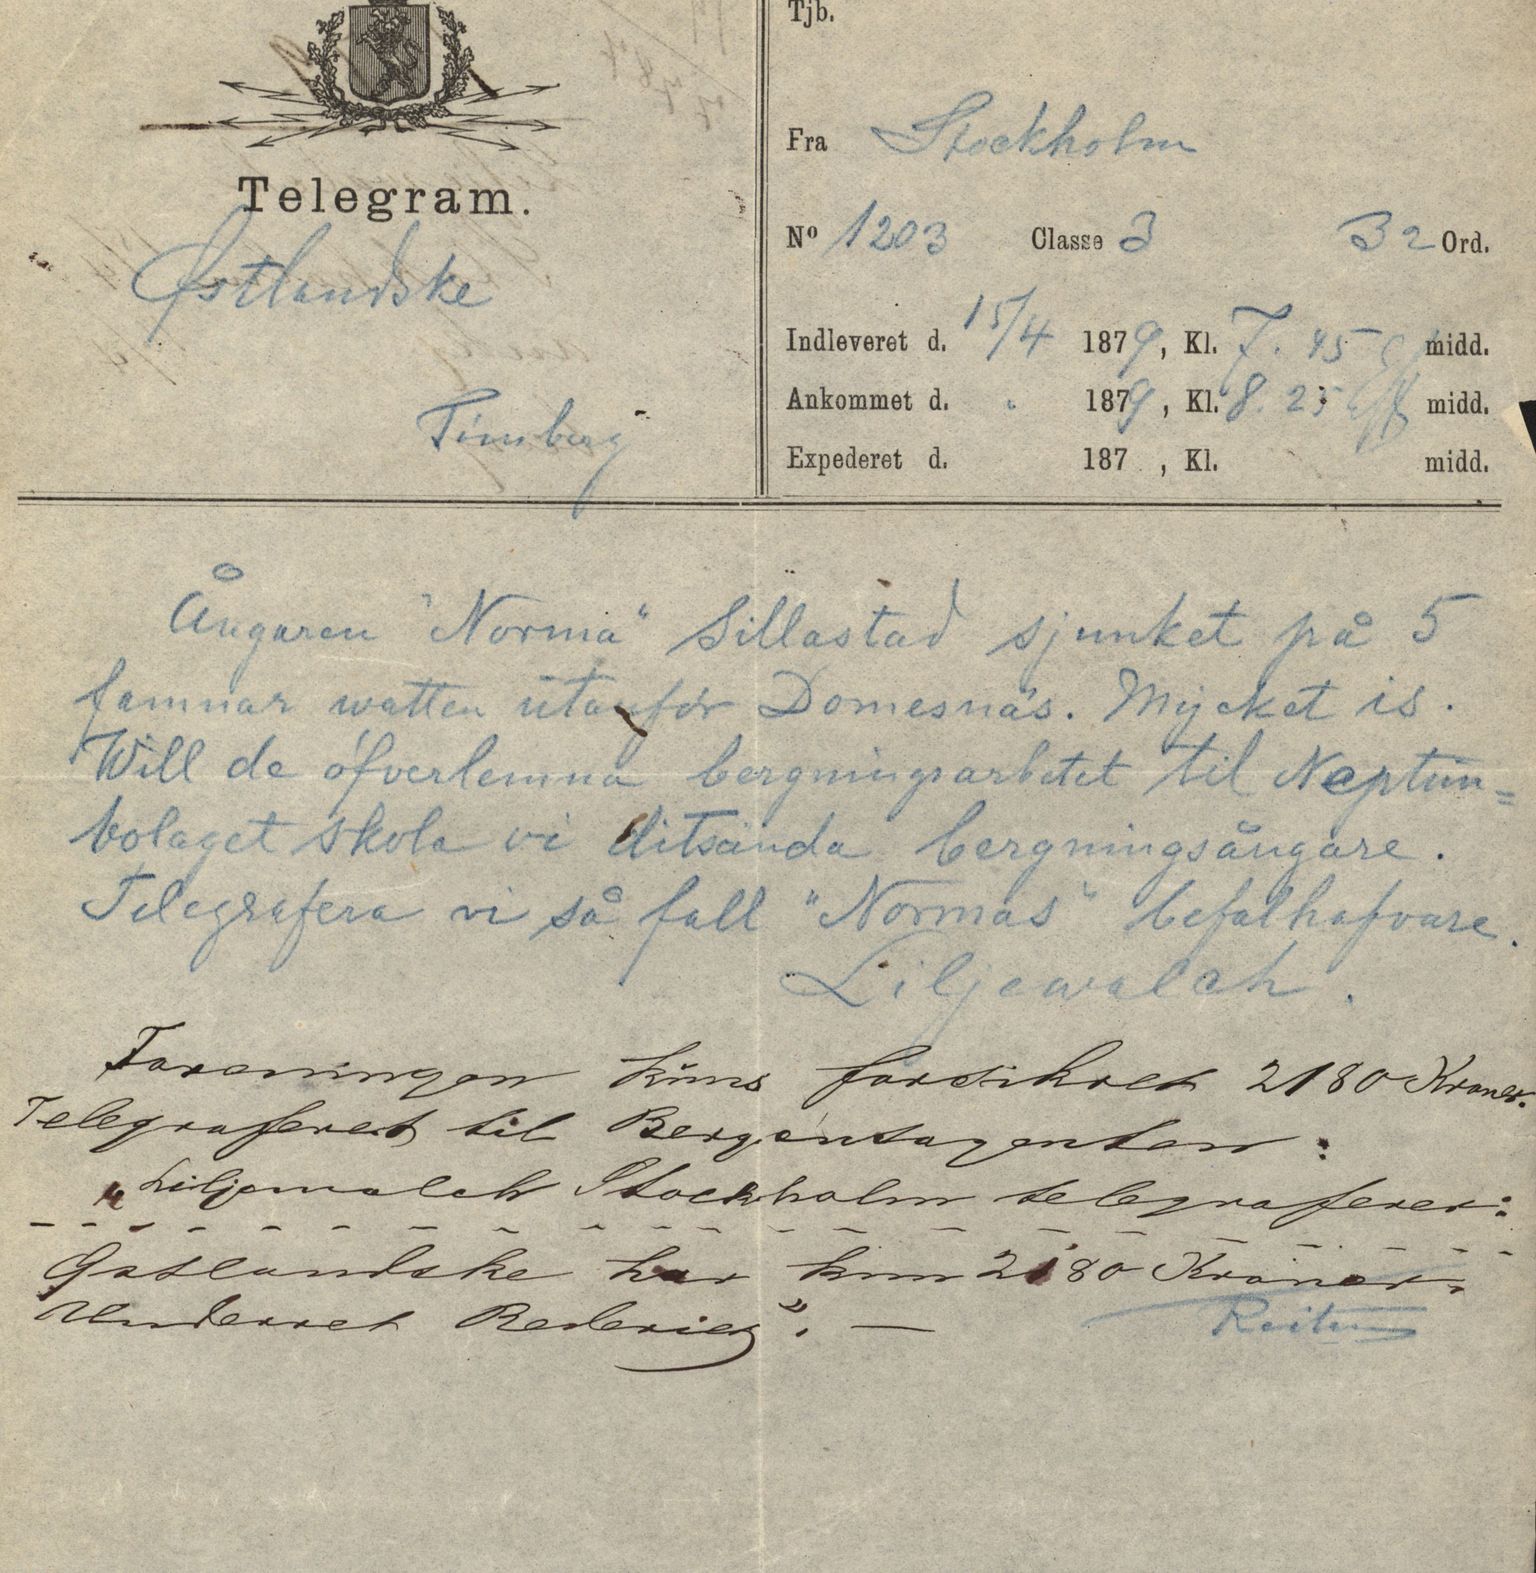 Tjb.
Telegram.
Østlandske
Tünsberg
Fra Stockholm
No 1203 Classe 3 32 Ord.
Indleveret d. 15/4 1879, Kl. 7.45 Ef midd.
Ankommet d. " 1879, Kl. 8.25 Eff midd.
Expederet d. 187 , Kl. midd.
Ångaren "Norma" Sillastad sjunket på 5
famnar watten utanför Domesnäs. Mycket is.
Will de öfverlemna bergningsarbetet til Neptun=
bolaget skola vi ditsända bergningsångare.
Telegrafera vi så fall "Normas" befalhafvare.
Liljewalch.
Foreningen kuns forsikret 2180 Kroner.
Telegraferet til Bergensagenten:
"Liljewalch Stockholm telegraferer:
- - - - - - - - - - - - - - - - - - -
Østlandske har kun 2180 Kroner.
Underret Rederiet". —
Reitun